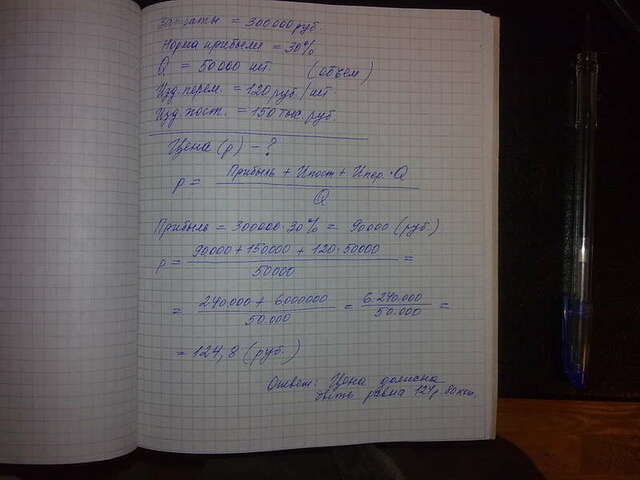 Затраты = 300000 руб.
Норма прибыли = 30%
Q = 50000 шт. (объем)
Изд перем. = 120 руб./шт
Изд пост. = 150 тыс. руб.
Цена (р) - ?
р = Прибыль + Ипост + Ипер. · Q
Q
Прибыль = 300000 · 30% = 90000 (руб.)
р = 90000 + 150000 + 120 · 50000 =
50000
= 240.000 + 6000000 = 6.240.000 =
50.000 50.000
= 124,8 (руб.)
Ответ: Цена должна
быть равна 124р. 80коп.